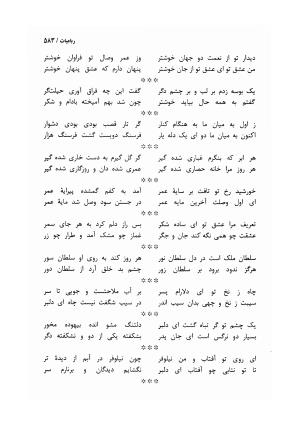 رباعیات / ۵۸۳
دیدار تو از نعمت دو جهان خوشتر وز عمر وصال تو فراوان خوشتر
من عشق تو ای عشق تو از جان خوشتر پنهان دارم که عشق پنهان خوشتر
***
یک بوسه زدم بر لب و بر چشم دگر گفت این چه فراق آوری حیلتگر
گفتم به همه حال بباید خواجه چون شد بهم آمیخته بادام و شکر
***
ز اول به میان ما که بودی دمساز گر تار قصب بودی بودی دشوار
اکنون به میان ما دو ای یک دله یار فرسنگ دویست گشت فرسنگ هزار
***
هر ابر که بنگرم غباری شده گیر هر گل گیرم به دست خاری شده گیر
هر روز مرا خانه حصاری شده گیر عمری شده دان و روزگاری شده گیر
***
خورشید رخ تو تافت بر سایهٔ عمر آمد به کفم گمشده پیرایهٔ عمر
ای اول وصلت آخرین مایه عمر در جستن سود وصل شد مایهٔ عمر
***
تعریف مرا عشق تو ای ساده شکر پس راز دلم کرد به هر جای سمر
عشقت چو همی نگه کند جان و جگر غماز چو مشک آمد و طرار چو زر
***
سلطان ملک است در دل سلطان نور هر روز کند به روی او سلطان سور
هرگز ندود برم بر سلطان زور چشم بد خلق آزاد از سلطان دور
***
چاه ز نخ تو ای دلارام پسر بر آب ملاحتست و جویایی تا سر
سیبت ز نخ و چهی بدان سیب اندر در سیب شگفت نیست چاه ای دلبر
***
یک چشم تو گر تباه گشت ای دلبر دلتنگ مشو انده بیهوده مخور
بسیار دو نرگس است ای جان پدر بشکفته یکی از دو و نشکفته دگر
***
ای روی تو آفتاب و من نیلوفر چون نیلوفر در آبم از دیدهٔ تر
تا تو نتابی چو آفتاب ای دلبر نگشایم دیدگان و برنارم سر
***